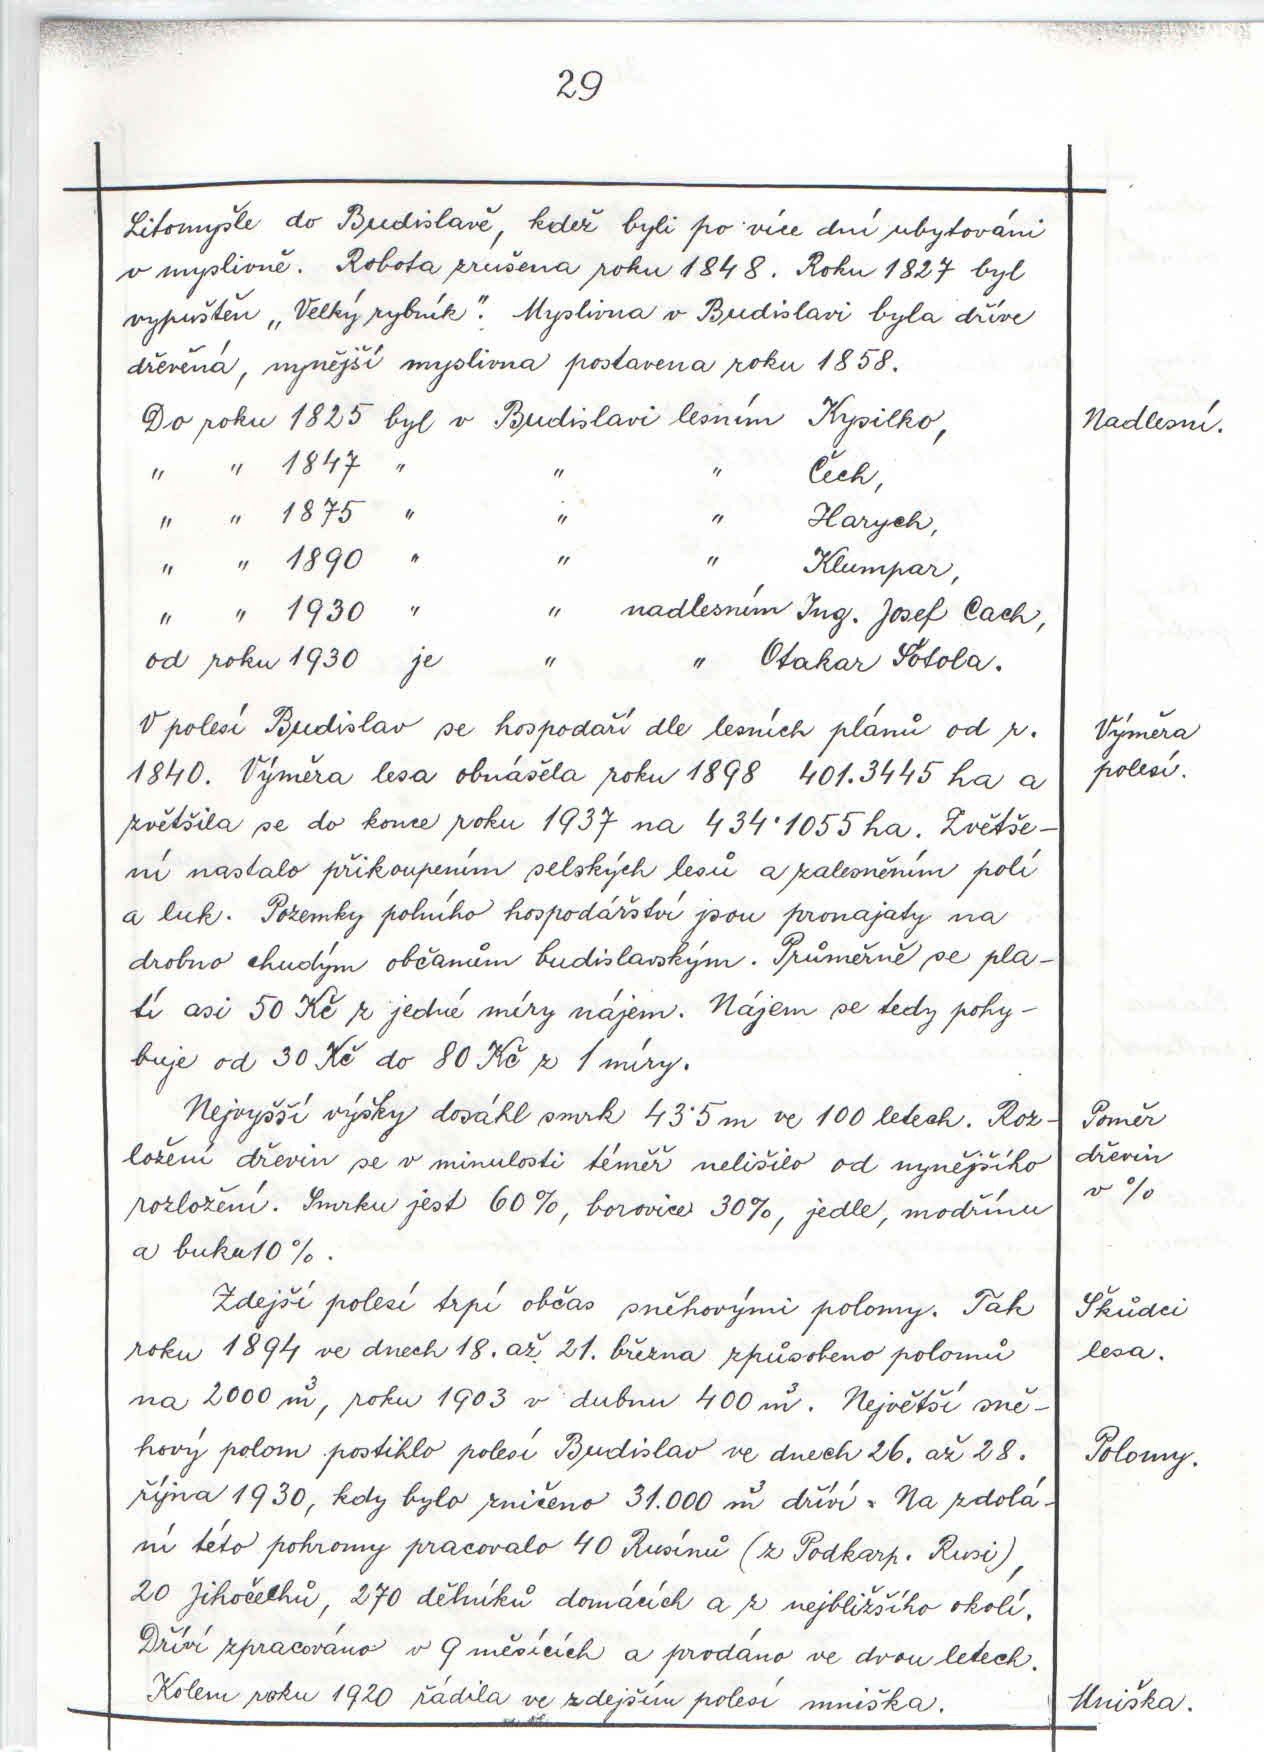 29
Litomyšle do Budislavě, kdež byli po více dní ubytováni
v myslivně. Robota zrušena roku 1848. Roku 1827 byl
vypuštěn „Velký rybník". Myslivna v Budislavi byla dříve
dřevěná, nynější myslivna postavena roku 1858.
Do roku 1825 byl v Budislavi lesním Kysilko,
Nadlesní.
„ „ 1847 „ „ „ Čech,
„ „ 1875 „ „ „ Harych,
„ „ 1890 „ „ „ Klumpar,
„ „ 1930 „ „ nadlesním Ing. Josef Cach,
od roku 1930 je „ „ Otakar Šotola.
V polesí Budislav se hospodaří dle lesních plánů od r.
Výměra
1840. Výměra lesa obnášela roku 1898 401.3445 ha a
polesí.
zvětšila se do konce roku 1937 na 434·1055 ha. Zvětše-
ní nastalo přikoupením selských lesů a zalesněním polí
a luk. Pozemky polního hospodářství jsou pronajaty na
drobno chudým občanům budislavským. Průměrně se pla-
tí asi 50 Kč z jedné míry nájem. Nájem se tedy pohy-
buje od 30 Kč do 80 Kč z 1 míry.
Nejvyšší výšky dosáhl smrk 43·5 m ve 100 letech. Roz-
Poměr
ložení dřevin se v minulosti téměř nelišilo od nynějšího
dřevin
rozložení. Smrku jest 60%, borovice 30%, jedle, modřínu
v %
a buku 10%.
Zdejší polesí trpí občas sněhovými polomy. Tak
Škůdci
roku 1894 ve dnech 18. až 21. března způsobeno polomů
lesa.
na 2000 m³, roku 1903 v dubnu 400 m³. Největší sně-
hový polom postihlo polesí Budislav ve dnech 26. až 28.
Polomy.
října 1930, kdy bylo zničeno 31.000 m³ dříví. Na zdolá-
ní této pohromy pracovalo 40 Rusínů (z Podkarp. Rusi),
20 Jihočechů, 270 dělníků domácích a z nejbližšího okolí.
Dříví zpracováno v 9 měsících a prodáno ve dvou letech.
Kolem roku 1920 řádila ve zdejším polesí mniška.
Mniška.